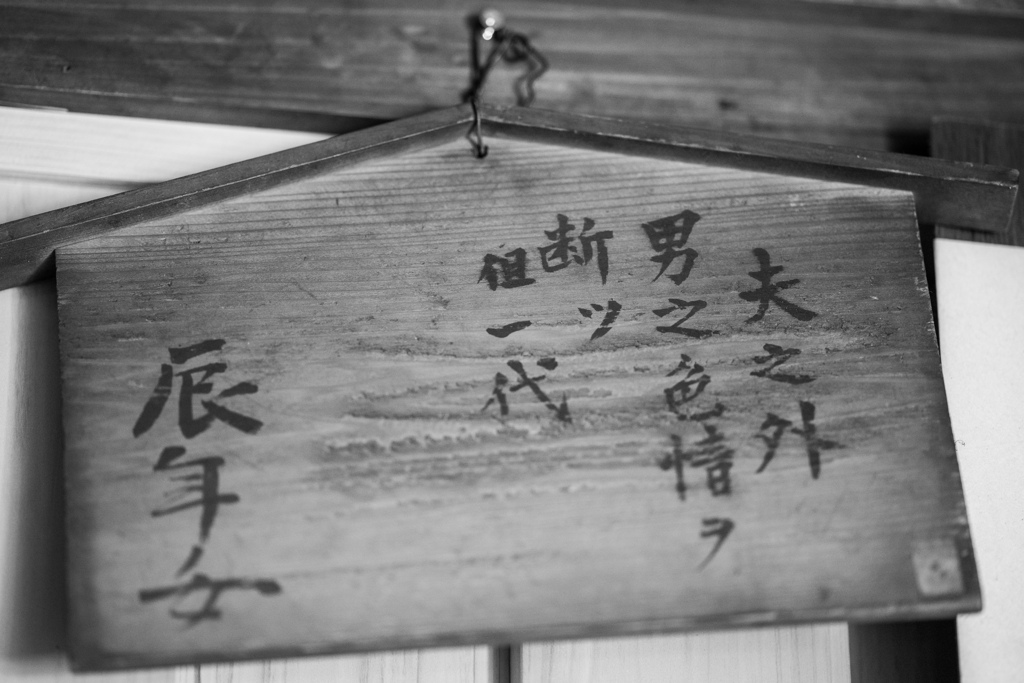 夫之外
男之色情ヲ
断ツ
但一代
辰年ノ女